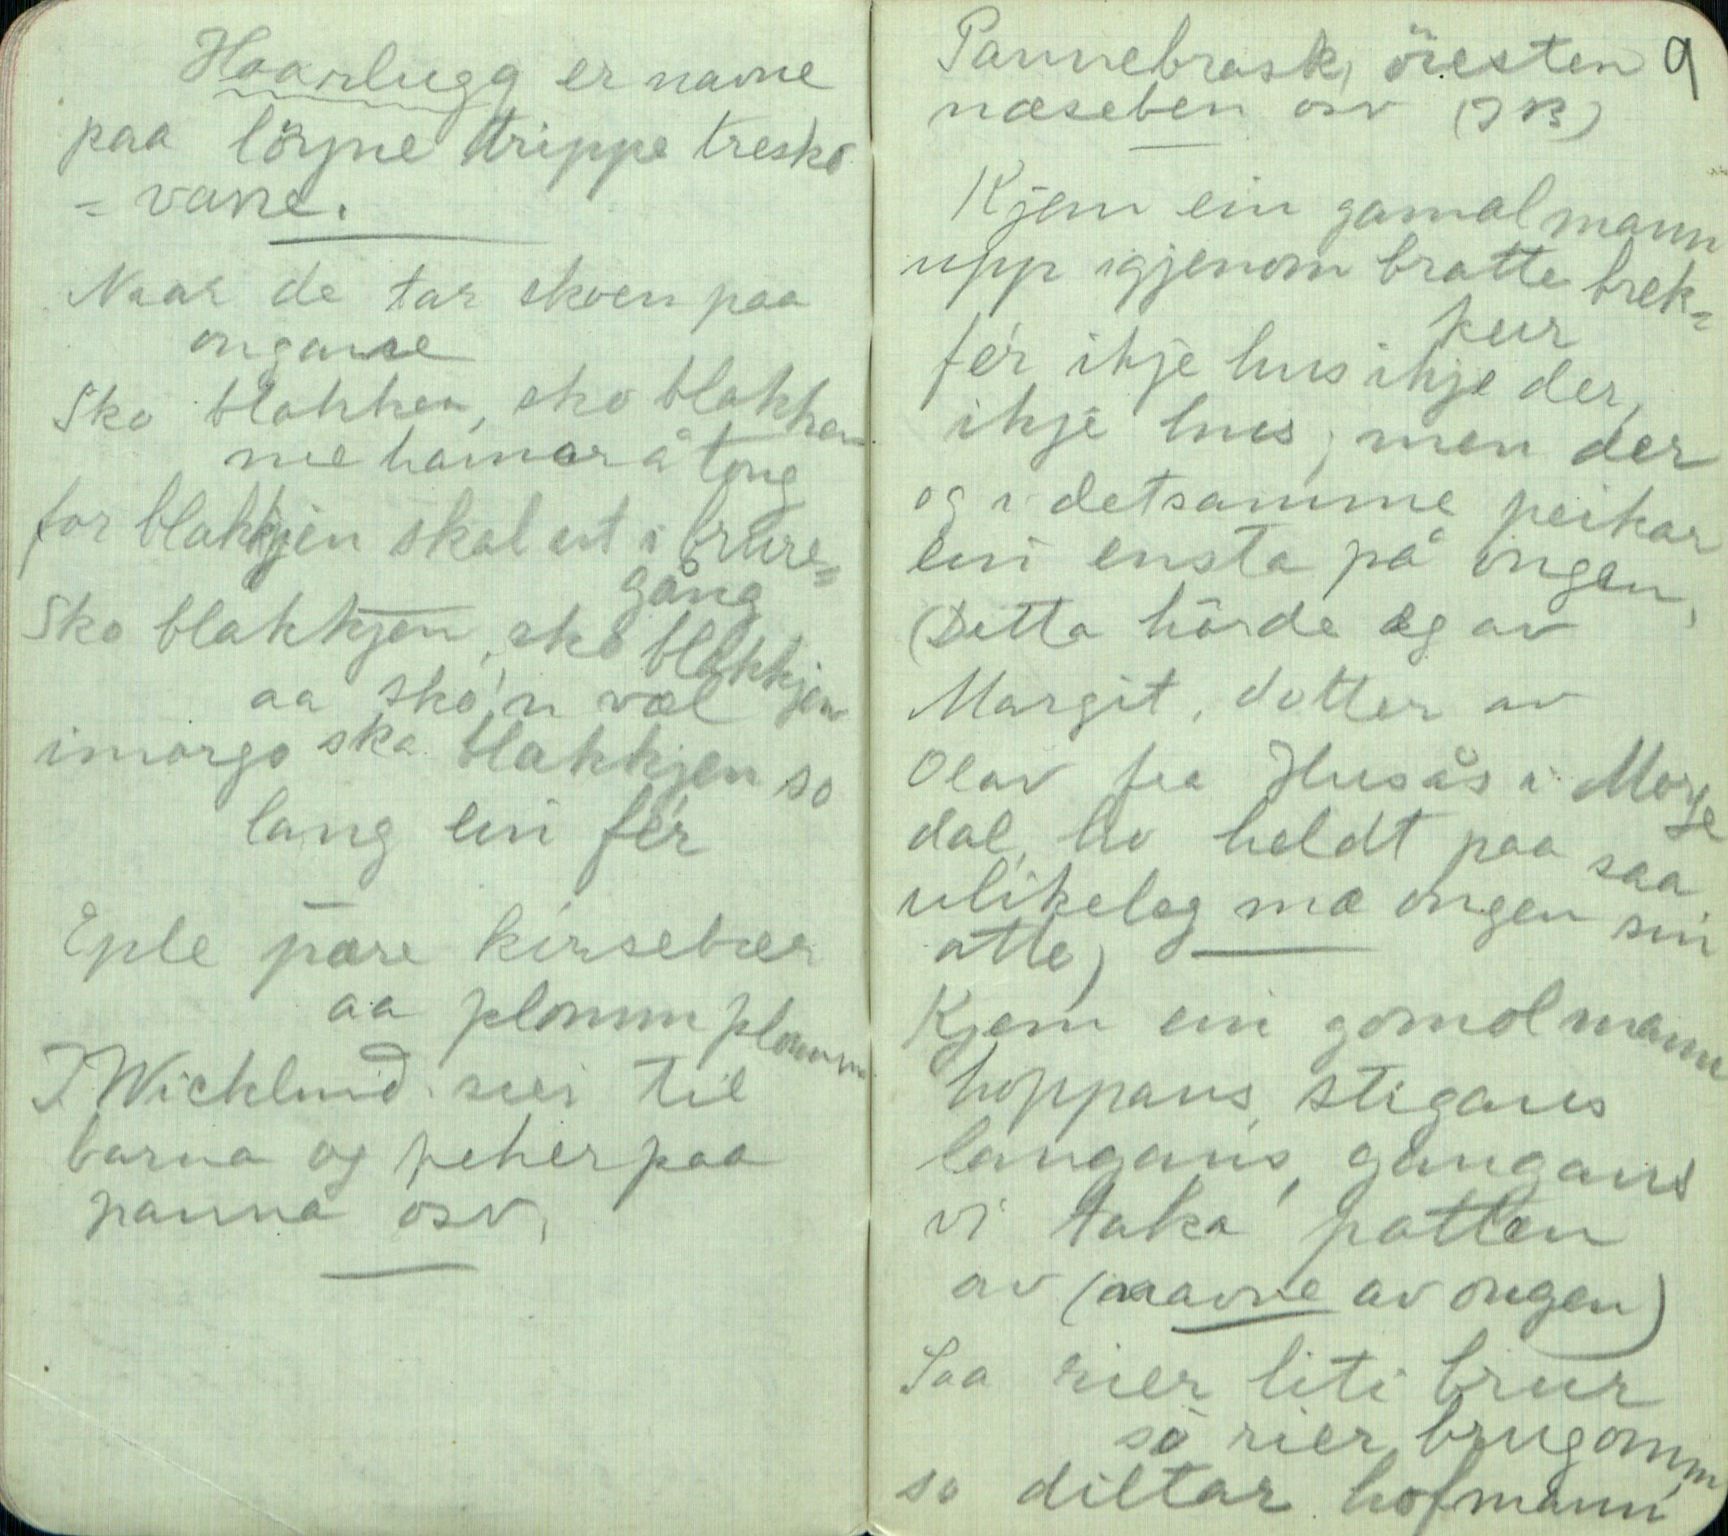 Haarlugg er navne
paa löyne trippe tresko
= vane.
Naar de tar skoen paa
ongane
Sko blakken, sko blakken
me hamar å tong
for blakkjen skal ut i brure=
gång
Sko blakkjen, sko blakkjen
aa sko'n væl
imorgo ska blakkjen so
lang ein fér
Eple pære kirsebær
aa plomm plomm
J. Wicklund seier til
barna og peker paa
panna osv.
Pannebrask, öiesten 9
næseben osv (J B)
Kjem ein gamal mann
upp igjenom bratte brek=
kur
fér ikje hus ikje der,
ikje hus, men der
og i detsamme peikar
ein ensta på ongen,
(Detta hörde eg av
Margit, dotter av
Olav fra Husås i Morge
dal, ho heldt paa saa
ulikeleg mæ ongen sin
atte)
Kjem ein gomol mann
hoppans, stigans
langans, gangans
vi taka patten
av (naavne av ongen)
Saa rier liti brur
so rier brugomm
so diltar hofmann